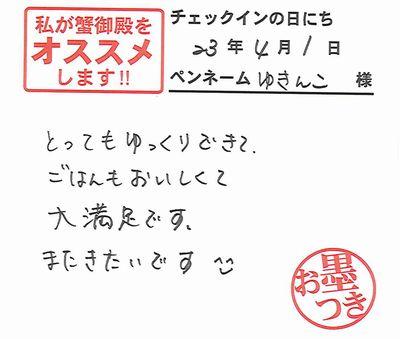 私が蟹御殿を
オススメ
します!!
チェックインの日にち
23年4月1日
ペンネーム ゆきんこ 様
とってもゆっくりできて、
ごはんもおいしくて
大満足です。
またきたいです
お墨
つき